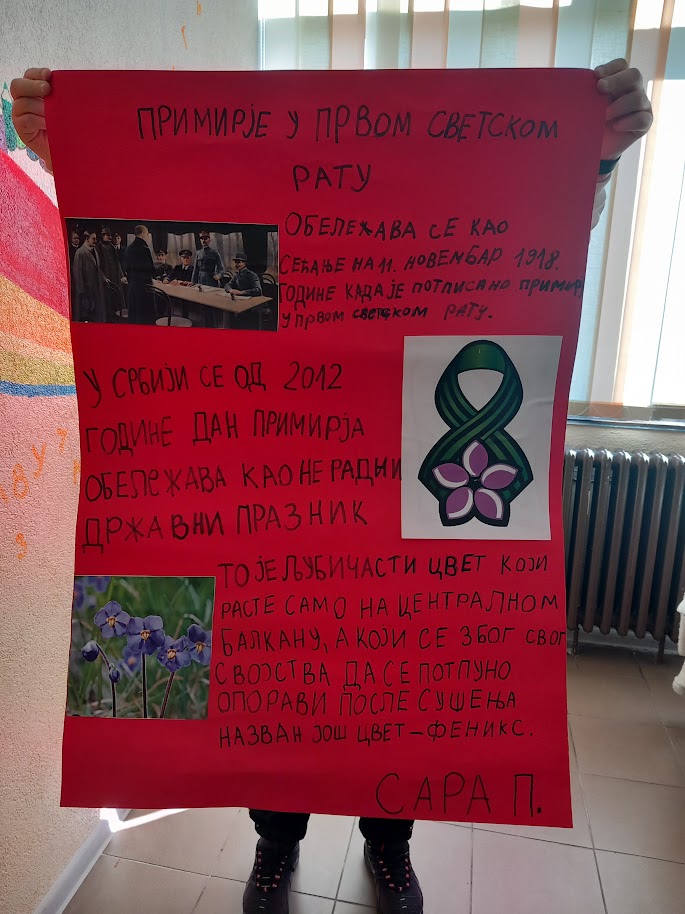 ПРИМИРЈЕ У ПРВОМ СВЕТСКОМ
РАТУ
ОБЕЛЕЖАВА СЕ КАО
СЕЋАЊЕ НА 11. НОВЕМБАР 1918.
ГОДИНЕ КАДА ЈЕ ПОТПИСАНО ПРИМИРЈ
У ПРВОМ СВЕТСКОМ РАТУ.
У СРБИЈИ СЕ ОД 2012
ГОДИНЕ ДАН ПРИМИРЈА
ОБЕЛЕЖАВА КАО НЕ РАДНИ
ДРЖАВНИ ПРАЗНИК
ТО ЈЕ ЉУБИЧАСТИ ЦВЕТ КОЈИ
РАСТЕ САМО НА ЦЕНТРАЛНОМ
БАЛКАНУ, А КОЈИ СЕ ЗБОГ СВОГ
СВОЈСТВА ДА СЕ ПОТПУНО
ОПОРАВИ ПОСЛЕ СУШЕЊА
НАЗВАН ЈОШ ЦВЕТ-ФЕНИКС.
САРА П.